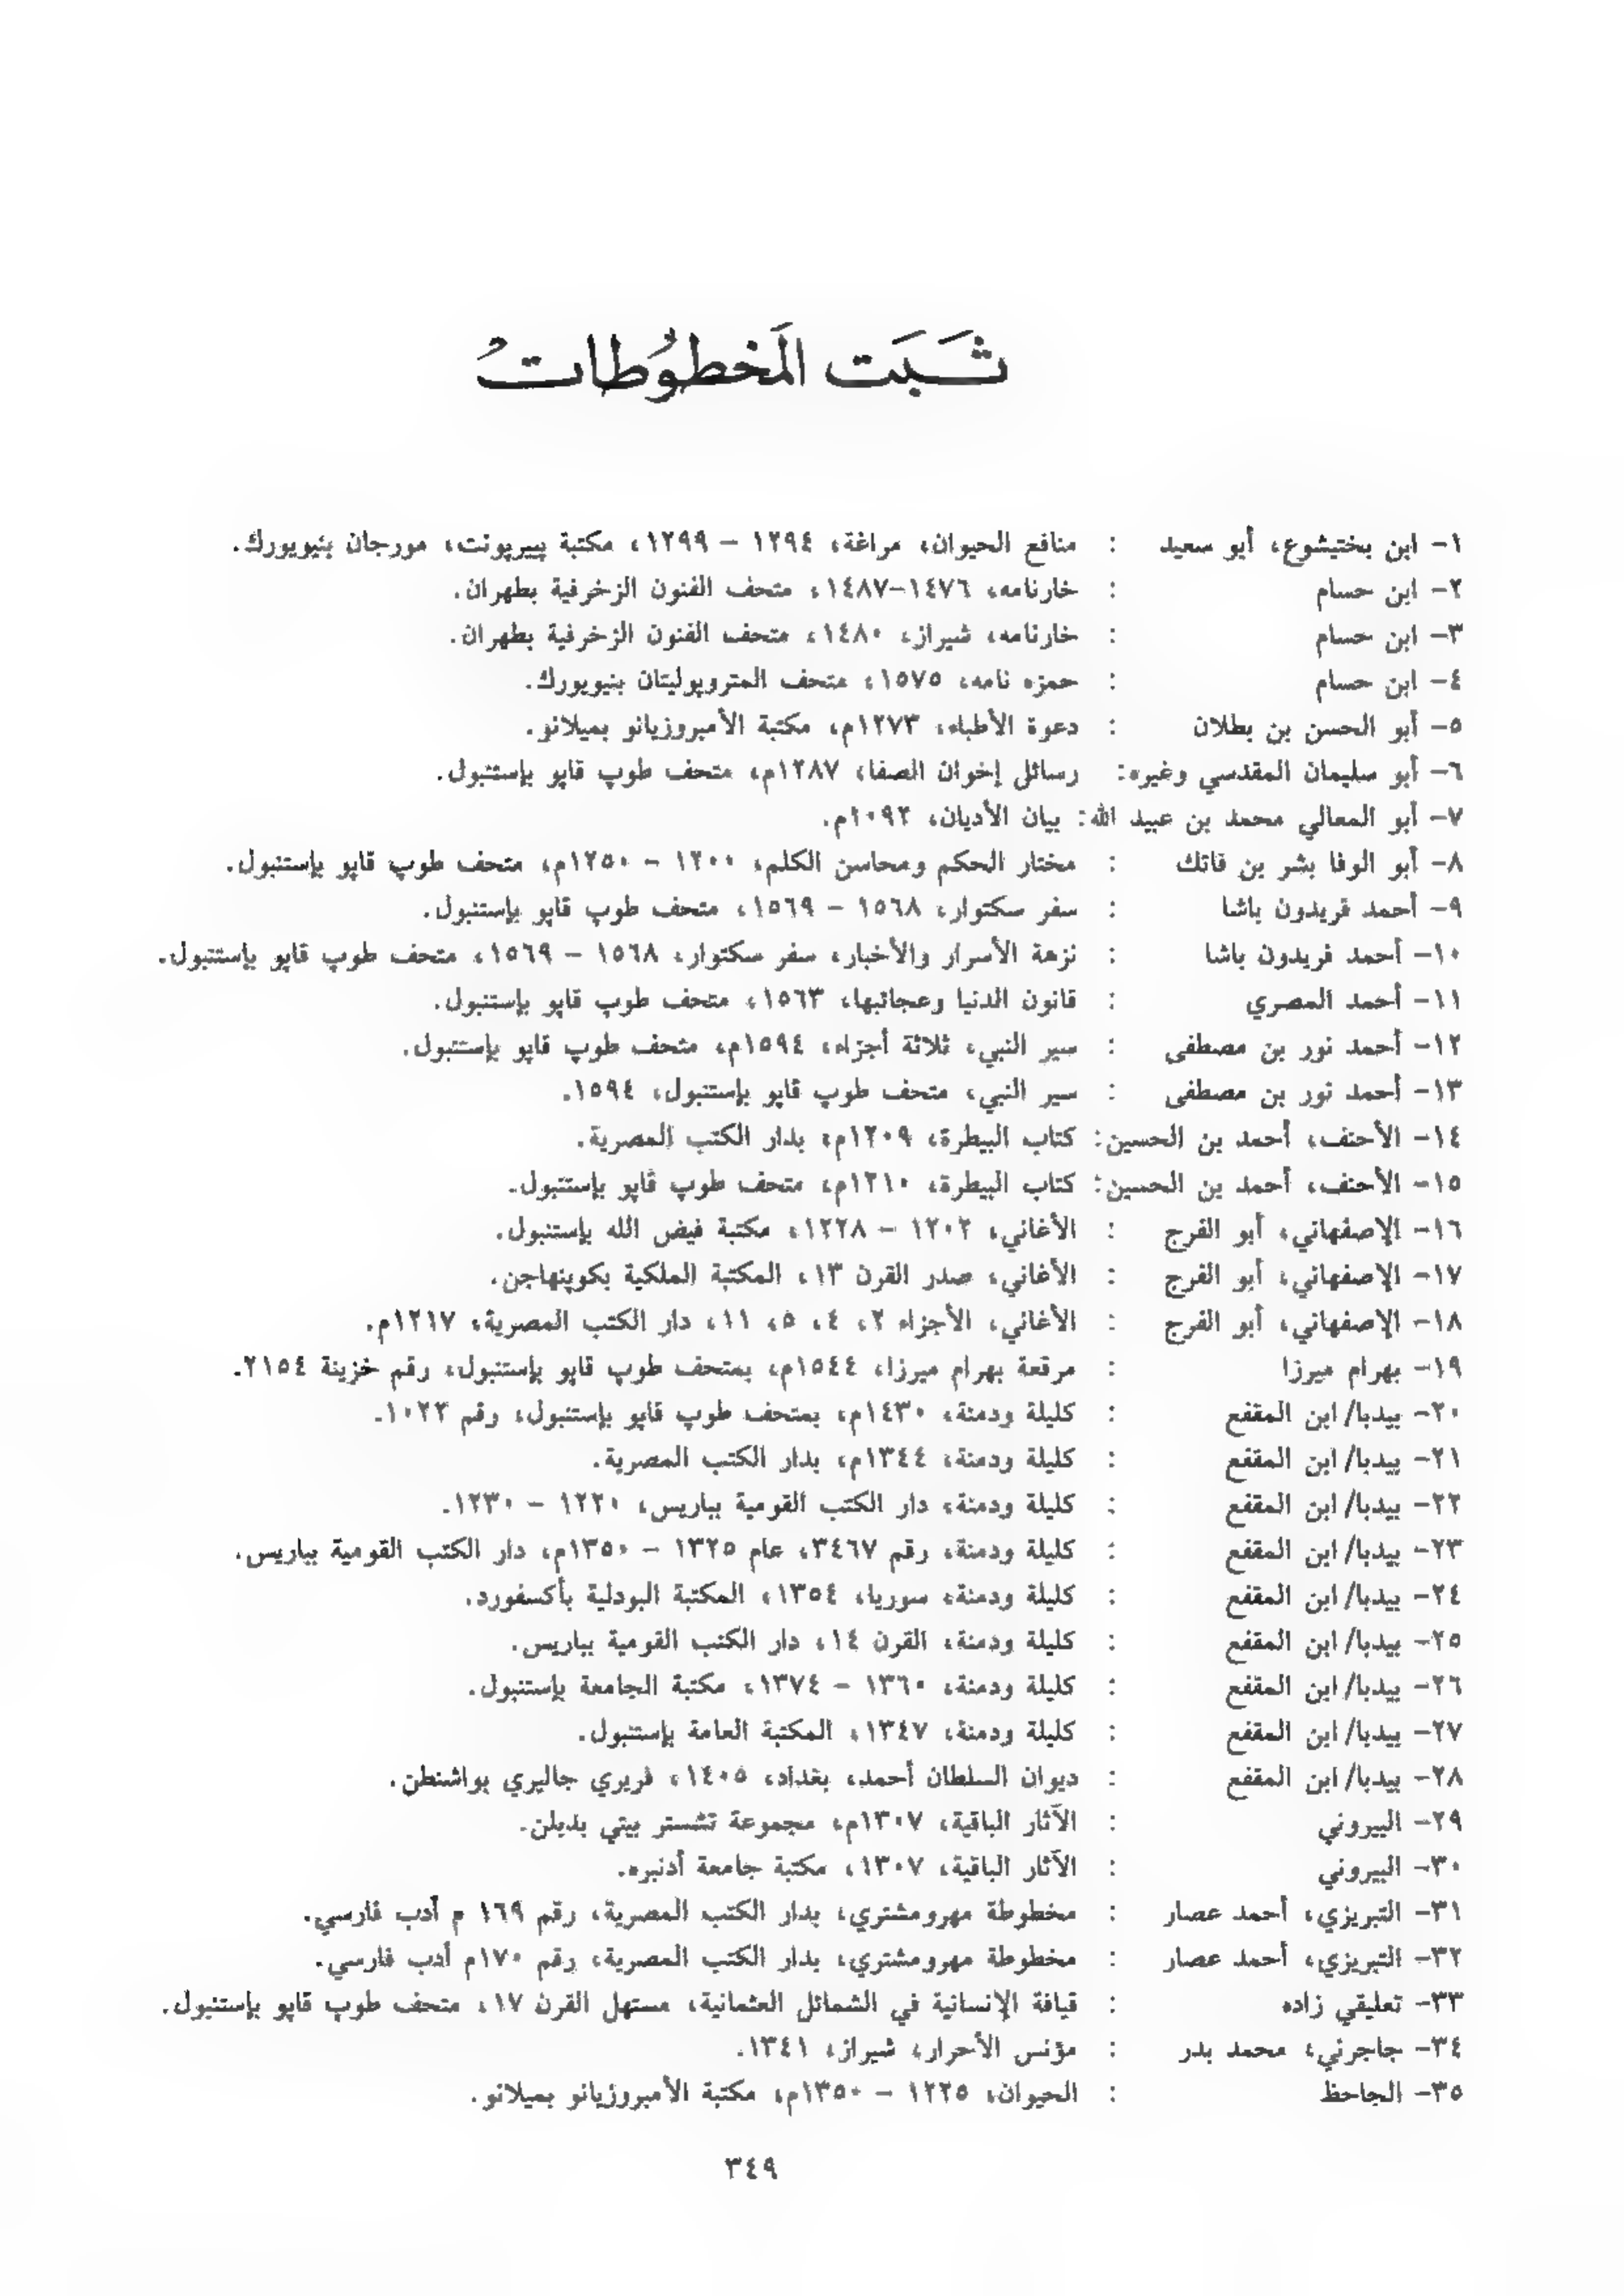 ثَبَت المَخطوُطات
١- ابن بختيشوع، أبو سعيد : منافع الحيوان، مراغة، ١٢٩٤ – ١٢٩٩، مكتبة پييرپونت، مورجان بنيويورك.
٢- ابن حسام : خارنامه، ١٤٧٦–١٤٨٧، متحف الفنون الزخرفية بطهران.
٣- ابن حسام : خارنامه، شيراز، ١٤٨٠، متحف الفنون الزخرفية بطهران.
٤- ابن حسام : حمزه نامه، ١٥٧٥، متحف المتروپوليتان بنيويورك.
٥- أبو الحسن بن بطلان : دعوة الأطباء، ١٢٧٣م، مكتبة الأمبروزيانو بميلانو.
٦- أبو سليمان المقدسي وغيره: رسائل إخوان الصفا، ١٢٨٧م، متحف طوپ قاپو بإستنبول.
٧- أبو المعالي محمد بن عبيد الله: بيان الأديان، ١٠٩٢م.
٨- أبو الوفا بشر بن فاتك : مختار الحكم ومحاسن الكلم، ١٢٠٠ – ١٢٥٠م، متحف طوپ قاپو بإستنبول.
٩- أحمد فريدون باشا : سفر سكتوار، ١٥٦٨ – ١٥٦٩، متحف طوپ قاپو بإستنبول.
١٠- أحمد فريدون باشا : نزهة الأسرار والأخبار، سفر سكتوار، ١٥٦٨ – ١٥٦٩، متحف طوپ قاپو بإستنبول.
١١- أحمد المصري : قانون الدنيا وعجائبها، ١٥٦٣، متحف طوپ قاپو بإستنبول.
١٢- أحمد نور بن مصطفى : سير النبي، ثلاثة أجزاء، ١٥٩٤م، متحف طوپ قاپو بإستنبول.
١٣- أحمد نور بن مصطفى : سير النبي، متحف طوپ قاپو بإستنبول، ١٥٩٤.
١٤- الأحنف، أحمد بن الحسين: كتاب البيطرة، ١٢٠٩م، بدار الكتب المصرية.
١٥- الأحنف، أحمد بن الحسين: كتاب البيطرة، ١٢١٠م، متحف طوپ قاپو بإستنبول.
١٦- الإصفهاني، أبو الفرج : الأغاني، ١٢٠٢ – ١٢٢٨، مكتبة فيض الله بإستنبول.
١٧- الإصفهاني، أبو الفرج : الأغاني، صدر القرن ١٣، المكتبة الملكية بكوپنهاجن.
١٨- الإصفهاني، أبو الفرج : الأغاني، الأجزاء ٢، ٤، ٥، ١١، دار الكتب المصرية، ١٢١٧م.
١٩- بهرام ميرزا : مرقعة بهرام ميرزا، ١٥٤٤م، بمتحف طوپ قاپو بإستنبول، رقم خزينة ٢١٥٤.
٢٠- بيدبا/ ابن المقفع : كليلة ودمنة، ١٤٣٠م، بمتحف طوپ قاپو بإستنبول، رقم ١٠٢٢.
٢١- بيدبا/ ابن المقفع : كليلة ودمنة، ١٣٤٤م، بدار الكتب المصرية.
٢٢- بيدبا/ ابن المقفع : كليلة ودمنة، دار الكتب القومية بباريس، ١٢٢٠ – ١٢٣٠.
٢٣- بيدبا/ ابن المقفع : كليلة ودمنة، رقم ٣٤٦٧، عام ١٣٢٥ – ١٣٥٠م، دار الكتب القومية بباريس.
٢٤- بيدبا/ ابن المقفع : كليلة ودمنة، سوريا، ١٣٥٤، المكتبة البودلية بأكسفورد.
٢٥- بيدبا/ ابن المقفع : كليلة ودمنة، القرن ١٤، دار الكتب القومية بباريس.
٢٦- بيدبا/ ابن المقفع : كليلة ودمنة، ١٣٦٠ – ١٣٧٤، مكتبة الجامعة بإستنبول.
٢٧- بيدبا/ ابن المقفع : كليلة ودمنة، ١٣٤٧، المكتبة العامة بإستنبول.
٢٨- بيدبا/ ابن المقفع : ديوان السلطان أحمد، بغداد، ١٤٠٥، فريري جاليري بواشنطن.
٢٩- البيروني : الآثار الباقية، ١٣٠٧م، مجموعة تشستر بيتي بدبلن.
٣٠- البيروني : الآثار الباقية، ١٣٠٧، مكتبة جامعة أدنبره.
٣١- التبريزي، أحمد عصار : مخطوطة مهرومشتري، بدار الكتب المصرية، رقم ١٦٩ م أدب فارسي.
٣٢- التبريزي، أحمد عصار : مخطوطة مهرومشتري، بدار الكتب المصرية، رقم ١٧٠م أدب فارسي.
٣٣- تعليقي زاده : قيافة الإنسانية في الشمائل العثمانية، مستهل القرن ١٧، متحف طوپ قاپو بإستنبول.
٣٤- جاجرني، محمد بدر : مؤنس الأحرار، شيراز، ١٣٤١.
٣٥- الجاحظ : الحيوان، ١٢٢٥ – ١٣٥٠م، مكتبة الأمبروزيانو بميلانو.
٣٤٩